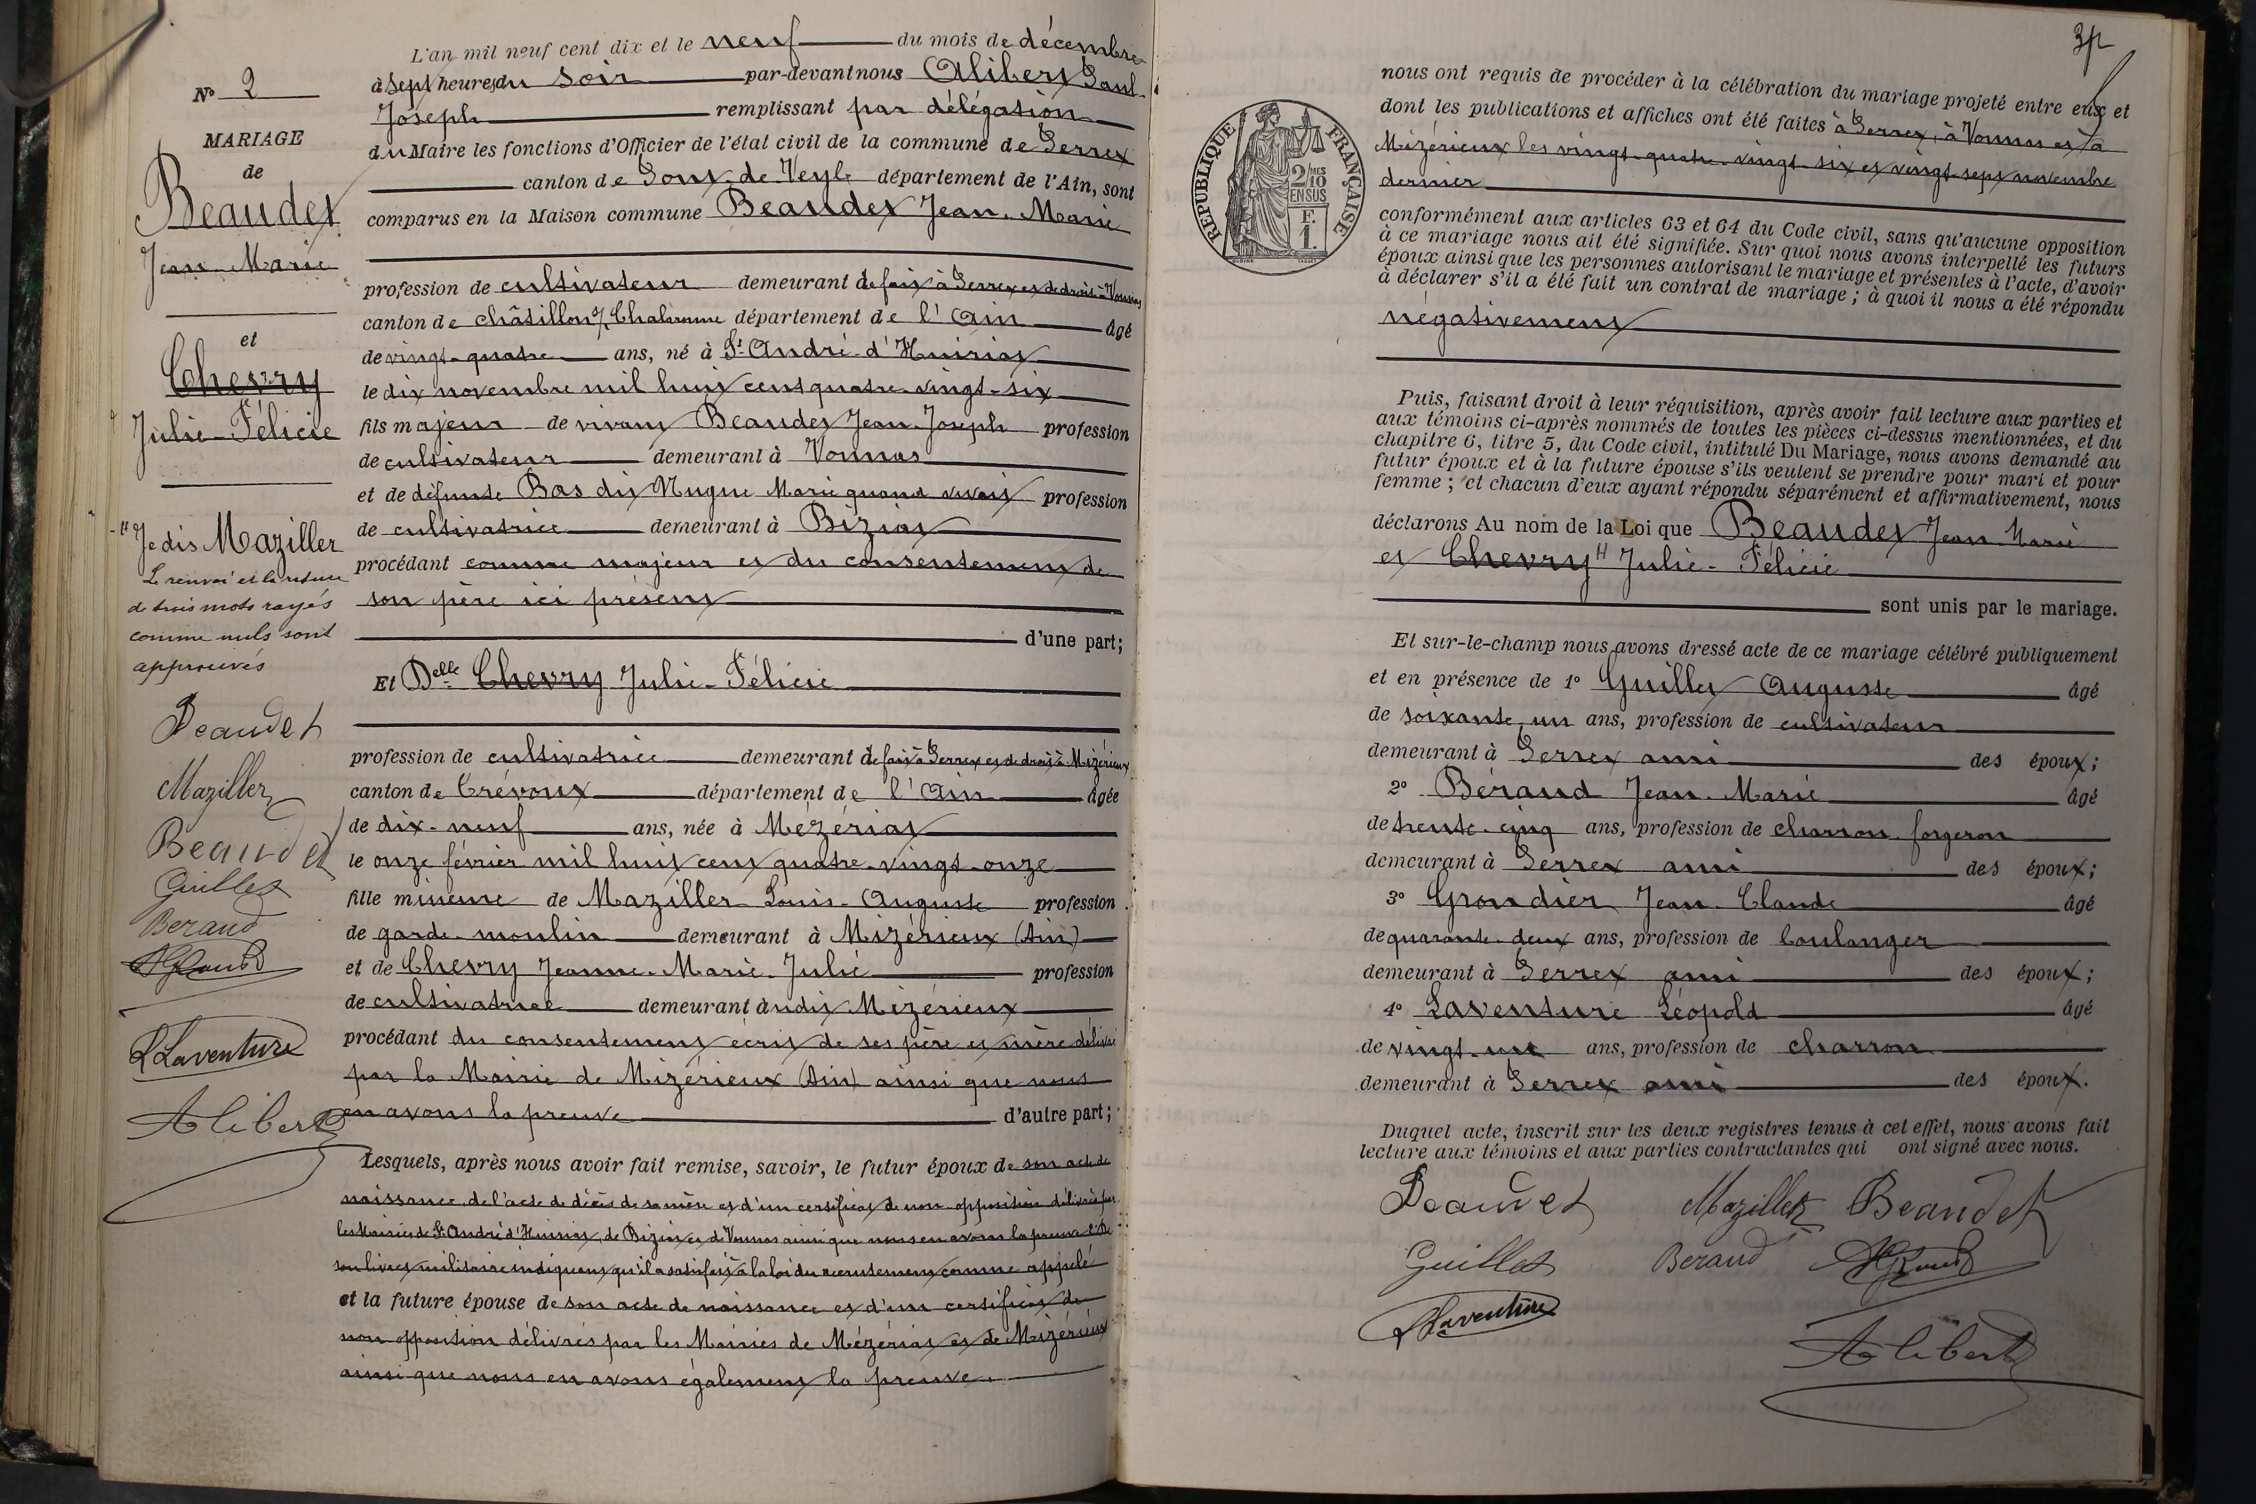 N° 2
MARIAGE
de
Beaudet
Jean-Marie
et
Chevry
Julie-Félicie
" Je dis Maziller
Le renvoi et la rature
de trois mots rayés
comme nuls sont
approuvés
Beaudet
Maziller
Beaudet
Guillet
Beraud
L Laventure
Alibert
L'an mil neuf cent dix et le neuf du mois de décembre
à sept heures du soir par-devant nous Alibert Paul-
Joseph remplissant par délégation
du Maire les fonctions d'Officier de l'état civil de la commune de Perrex
canton de Pont-de-Veyle département de l'Ain, sont
comparus en la Maison commune Beaudet Jean-Marie
profession de cultivateur demeurant de fait à Perrex et de droit à Vonnas
canton de Châtillon s/ Chalaronne département de l'Ain âgé
de vingt-quatre ans, né à St André-d'Huiriat
le dix novembre mil huit cent quatre-vingt-six
fils majeur de vivant Beaudet Jean-Joseph profession
de cultivateur demeurant à Vonnas
et de défunte Bas dit Nugue Marie quand vivait profession
de cultivatrice demeurant à Biziat
procédant comme majeur et du consentement de
son père ici présent
d'une part;
Et Delle Chevry Julie-Félicie
profession de cultivatrice demeurant de fait à Perrex et de droit à Mizérieux
canton de Trévoux département de l'Ain âgée
de dix-neuf ans, née à Mézériat
le onze février mil huit cent quatre-vingt-onze
fille mineure de Maziller Louis-Auguste profession
de garde-moulin demeurant à Mizérieux (Ain)
et de Chevry Jeanne-Marie-Julie profession
de cultivatrice demeurant audit Mizérieux
procédant du consentement écrit de ses père et mère délivré
par la Mairie de Mizérieux (Ain) ainsi que nous
en avons la preuve d'autre part;
Lesquels, après nous avoir fait remise, savoir, le futur époux de son acte de
naissance de l'acte de décès de sa mère et d'un certificat de non opposition délivrés par
les Mairies de St André d'Huiriat, de Biziat et de Vonnas ainsi que nous en avons la preuve 2° De
son livret militaire indiquant qu'il a satisfait à la loi du recrutement comme appelé
et la future épouse de son acte de naissance et d'un certificat de
non opposition délivrés par les Mairies de Mézériat et de Mizérieux
ainsi que nous en avons également la preuve.
RÉPUBLIQUE FRANÇAISE
2/10 MES
EN SUS
F.
1.
nous ont requis de procéder à la célébration du mariage projeté entre eux et
dont les publications et affiches ont été faites à Perrex, à Vonnas et à
Mizérieux les vingt-quatre-vingt-six et vingt-sept novembre
dernier
conformément aux articles 63 et 64 du Code civil, sans qu'aucune opposition
à ce mariage nous ait été signifiée. Sur quoi nous avons interpellé les futurs
époux ainsi que les personnes autorisant le mariage et présentes à l'acte, d'avoir
à déclarer s'il a été fait un contrat de mariage; à quoi il nous a été répondu
négativement
Puis, faisant droit à leur réquisition, après avoir fait lecture aux parties et
aux témoins ci-après nommés de toutes les pièces ci-dessus mentionnées, et du
chapitre 6, titre 5, du Code civil, intitulé Du Mariage, nous avons demandé au
futur époux et à la future épouse s'ils veulent se prendre pour mari et pour
femme; et chacun d'eux ayant répondu séparément et affirmativement, nous
déclarons Au nom de la Loi que Beaudet Jean Marie
et Chevry " Julie-Félicie
sont unis par le mariage.
Et sur-le-champ nous avons dressé acte de ce mariage célébré publiquement
et en présence de 1° Guillet Auguste âgé
de soixante-un ans, profession de cultivateur
demeurant à Perrex ami des époux;
2° Béraud Jean-Marie âgé
de trente-cinq ans, profession de charron-forgeron
demeurant à Perrex ami des époux;
3° Grondier Jean-Claude âgé
de quarante-deux ans, profession de boulanger
demeurant à Perrex ami des époux;
4° Laventure Léopold âgé
de vingt-un ans, profession de charron
demeurant à Perrex ami des époux.
Duquel acte, inscrit sur les deux registres tenus à cet effet, nous avons fait
lecture aux témoins et aux parties contractantes qui ont signé avec nous.
Beaudet Maziller Beaudet
Guillet Beraud
L Laventure
Alibert